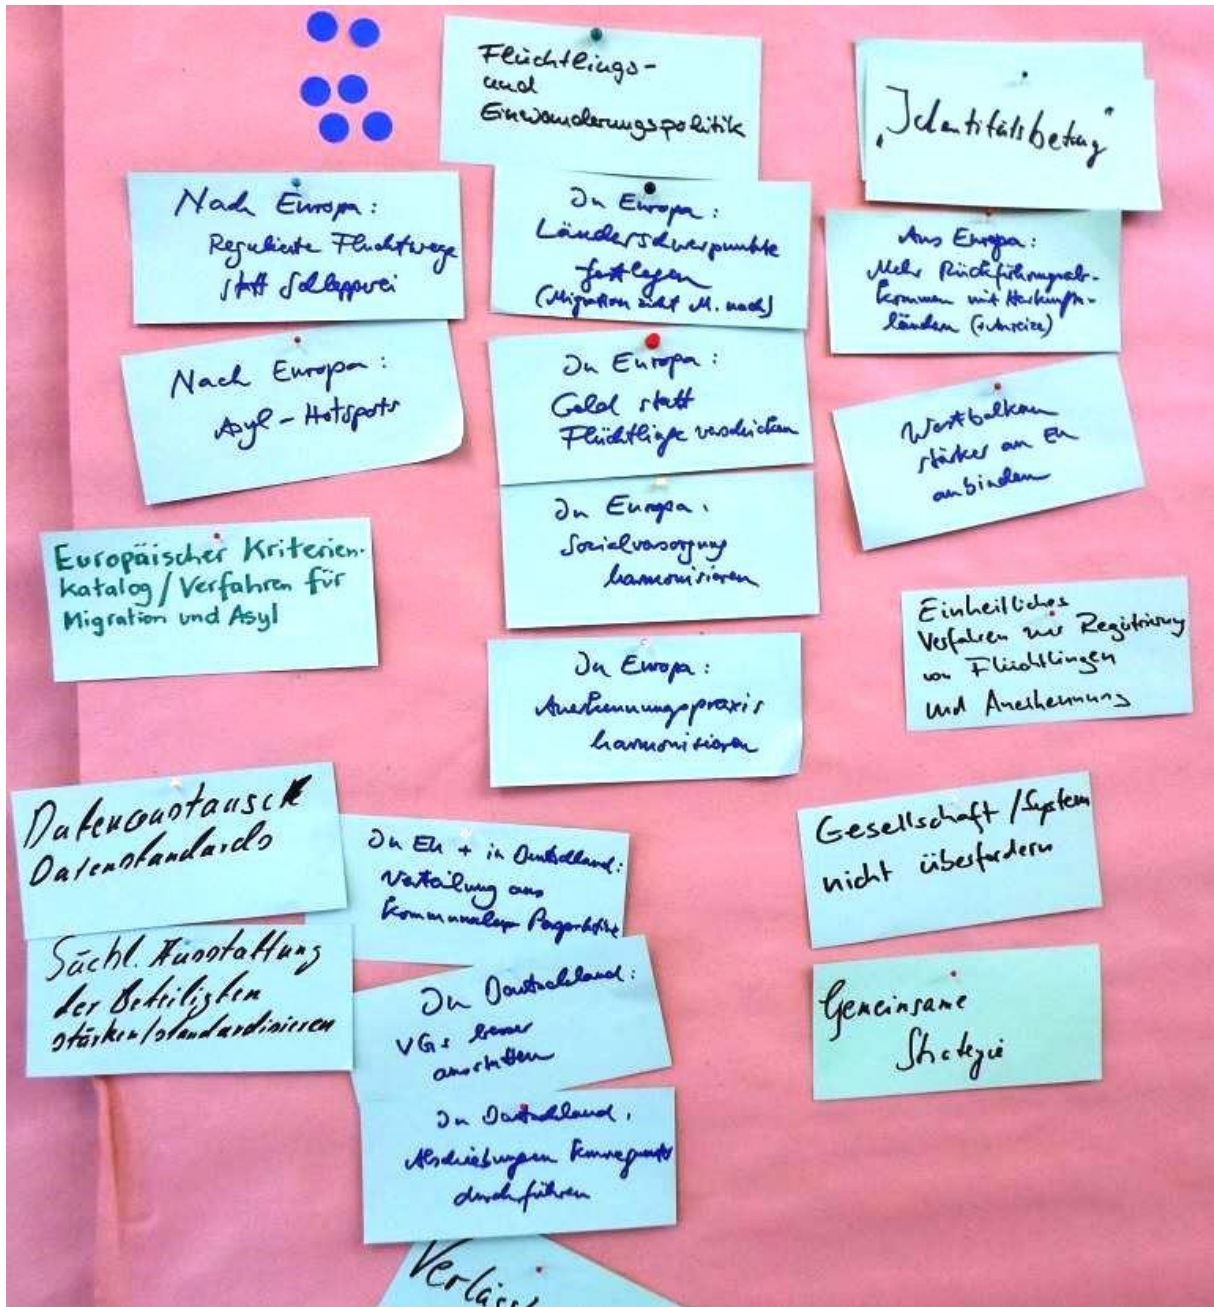 Flüchtlings-
und
Einwanderungspolitik
„Identitätsbetrug"
Nach Europa:
Regulierte Fluchtwege
statt Schlepperei
In Europa:
Länderschwerpunkte
festlegen
(Migration zieht M. nach)
Aus Europa:
Mehr Rückführungsab-
kommen mit Herkunfts-
ländern (+Anreize)
Nach Europa:
Asyl-Hotspots
In Europa:
Geld statt
Flüchtlinge verschicken
Westbalkan
stärker an EU
anbinden
In Europa:
Sozialversorgung
harmonisieren
Europäischer Kriterien-
katalog/Verfahren für
Migration und Asyl
Einheitliches
Verfahren zur Registrierung
von Flüchtlingen
und Anerkennung
In Europa:
Anerkennungspraxis
harmonisieren
Datenaustausch
Datenstandards
In EU + in Deutschland:
Verteilung aus
kommunaler
Gesellschaft/System
nicht überfordern
Sächl. Ausstattung
der Beteiligten
stärken/standardisieren
In Deutschland:
VGs besser
ausstatten
Gemeinsame
Strategie
In Deutschland:
Abschiebungen konsequenter
durchführen